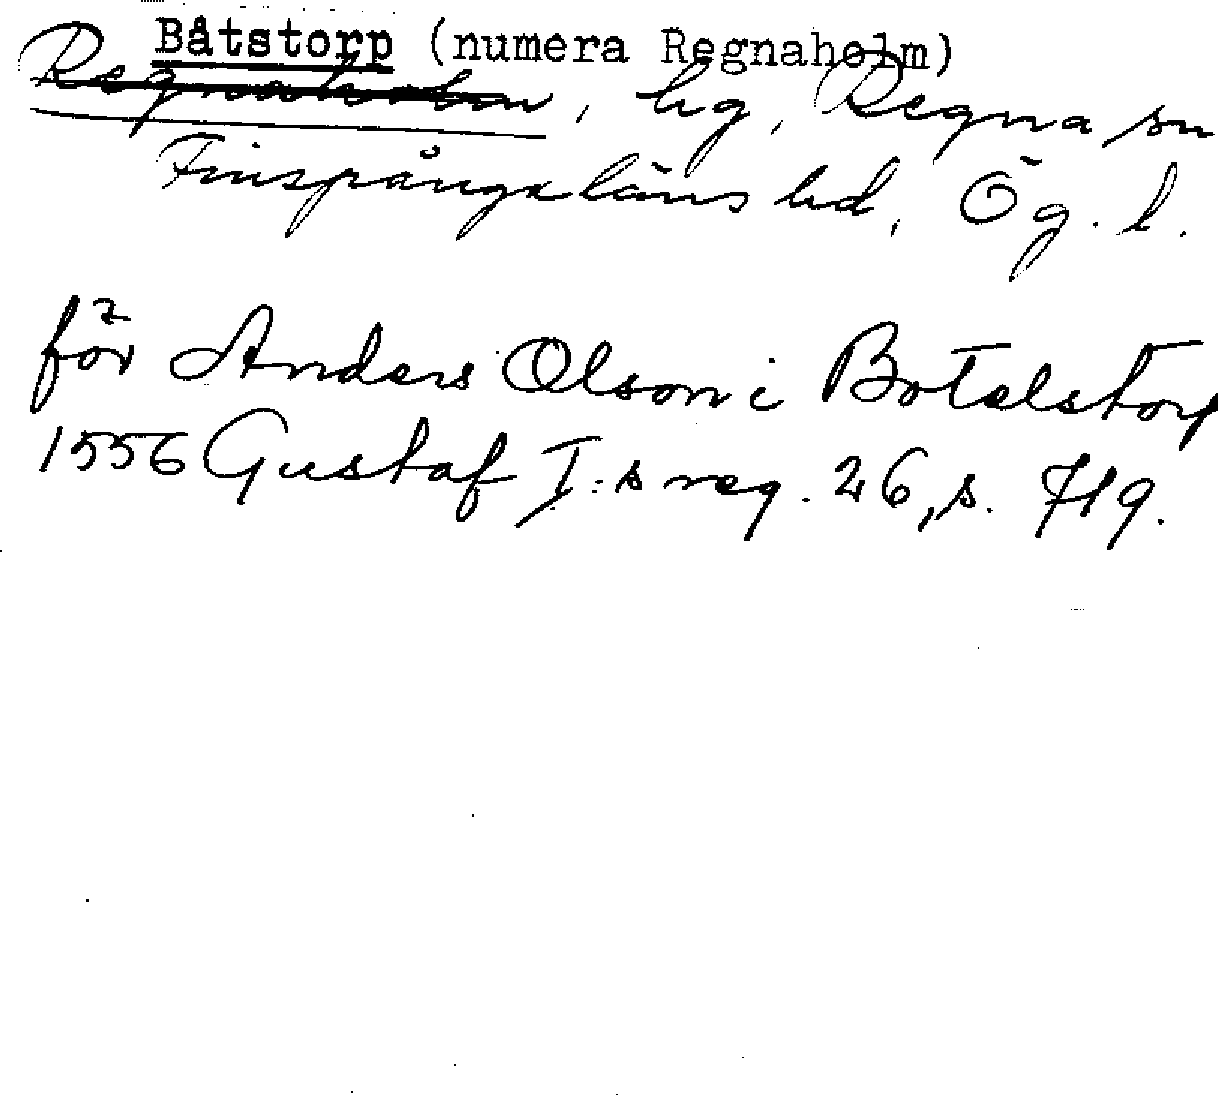 Båtstorp (numera Regnaholm)
Regnaholm, hg, Regna sn
Finspångaläns hd, Ög. l.
för Anders Olson i Botelstorp
1556 Gustaf I:s reg. 26, s. 719.